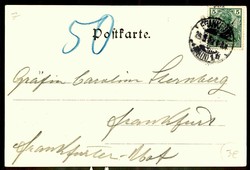 50
Postkarte.
5
Gräfin Caroline Sternberg
Frankfurt
Frankfurter-Hof